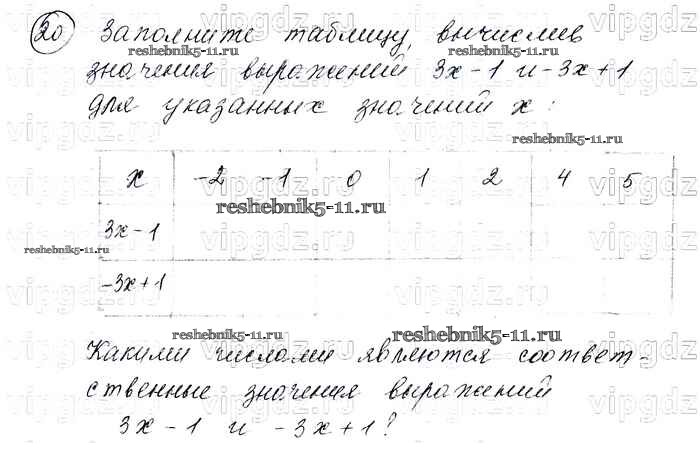 20 Заполните таблицу, вычислив
reshebnik5-11.ru reshebnik5-11.ru
значения выражений 3x-1 и -3x+1
для указанных значений x:
reshebnik5-11.ru
x -2 -1 0 1 2 4 5
reshebnik5-11.ru
3x-1
reshebnik5-11.ru
-3x+1
reshebnik5-11.ru reshebnik5-11.ru
Какими числами являются соответ-
ственные значения выражений
3x-1 и -3x+1?
vipgdz.ru